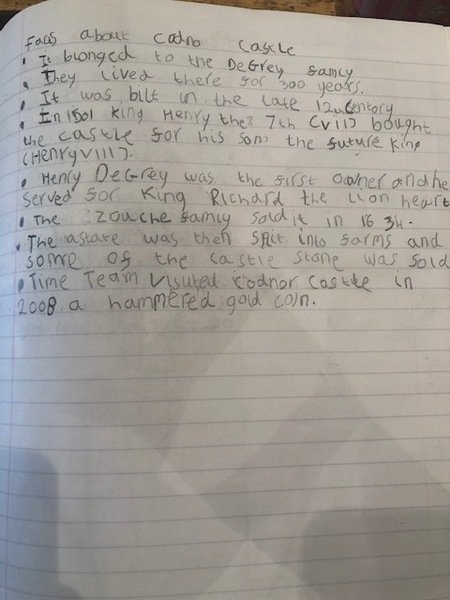 Facs about codno castle
• It blonged to the DeGrey famly
• They lived there for 300 years.
• It was bilt in the late 12th Centory
• In 1501 King Henry the 7th (VII) bought
the castle for his son: the future King
(HENRY VIII).
• Henry DeGrey was the first owner and he
served for King Richard the lion heart
• The Zouche famly sold it in 1634.
• The astate was then split into farms and
some of the castle stone was sold
• Time Team visuted Codnor Castle in
2008 a hammered gold coin.